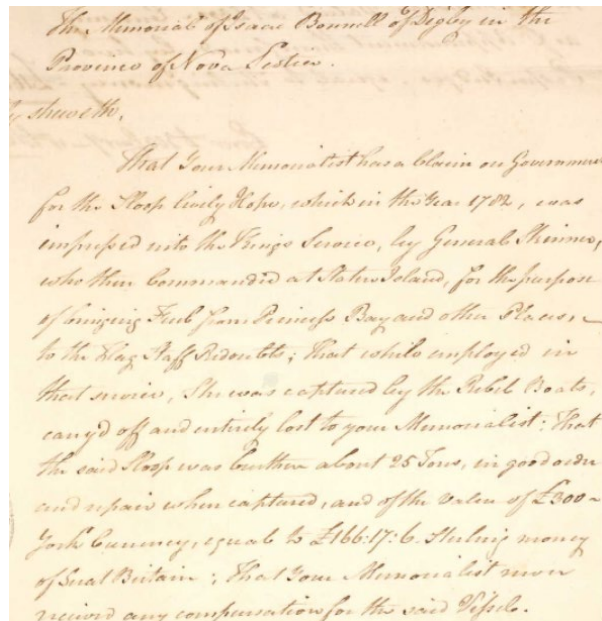 The Memorial of Isaac Bonnell of Digby in the
Province of Nova Scotia.
sheweth,
That Your Memorialist has a Claim on Government
for the Sloop lively Hope, which in the Year 1782, was
impressed into the Kings Service, by General Skinner,
who then Commanded at Staten Island, for the purpose
of bringing Fuel from Princess Bay and other Places,
to the Flag Staff Redoubts; That while employed in
that service, She was captured by the Rebel Boats,
carryd off and entirely lost to your Memorialist: That
the said Sloop was burthen about 25 Tons, in good order
and repair when captured, and of the value of £300-
York Currency, equal to £166:17:6. Sterling money
of Great Britain; That Your Memorialist never
receivd any compensation for the said Vessel.